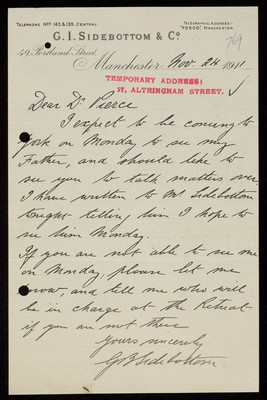 TELEPHONE Nos 143 & 135, CENTRAL.
TELEGRAPHIC ADDRESS:-
"FOSCO," MANCHESTER.
G. I. SIDEBOTTOM & Co.
769
49, Portland Street,
Manchester, Nov. 24 1911
TEMPORARY ADDRESS:
17, ALTRINGHAM STREET.
Dear Dr Pierce
I expect to be coming to
York on Monday to see my
Father, and should like to
see you to talk matters over.
I have written to Mr Sidebottom
tonight telling him I hope to
see him Monday.
If you are not able to see me
on Monday, please let me
know, and tell me who will
be in charge at the Retreat
if you are not there
Yours sincerely
GB Sidebottom.